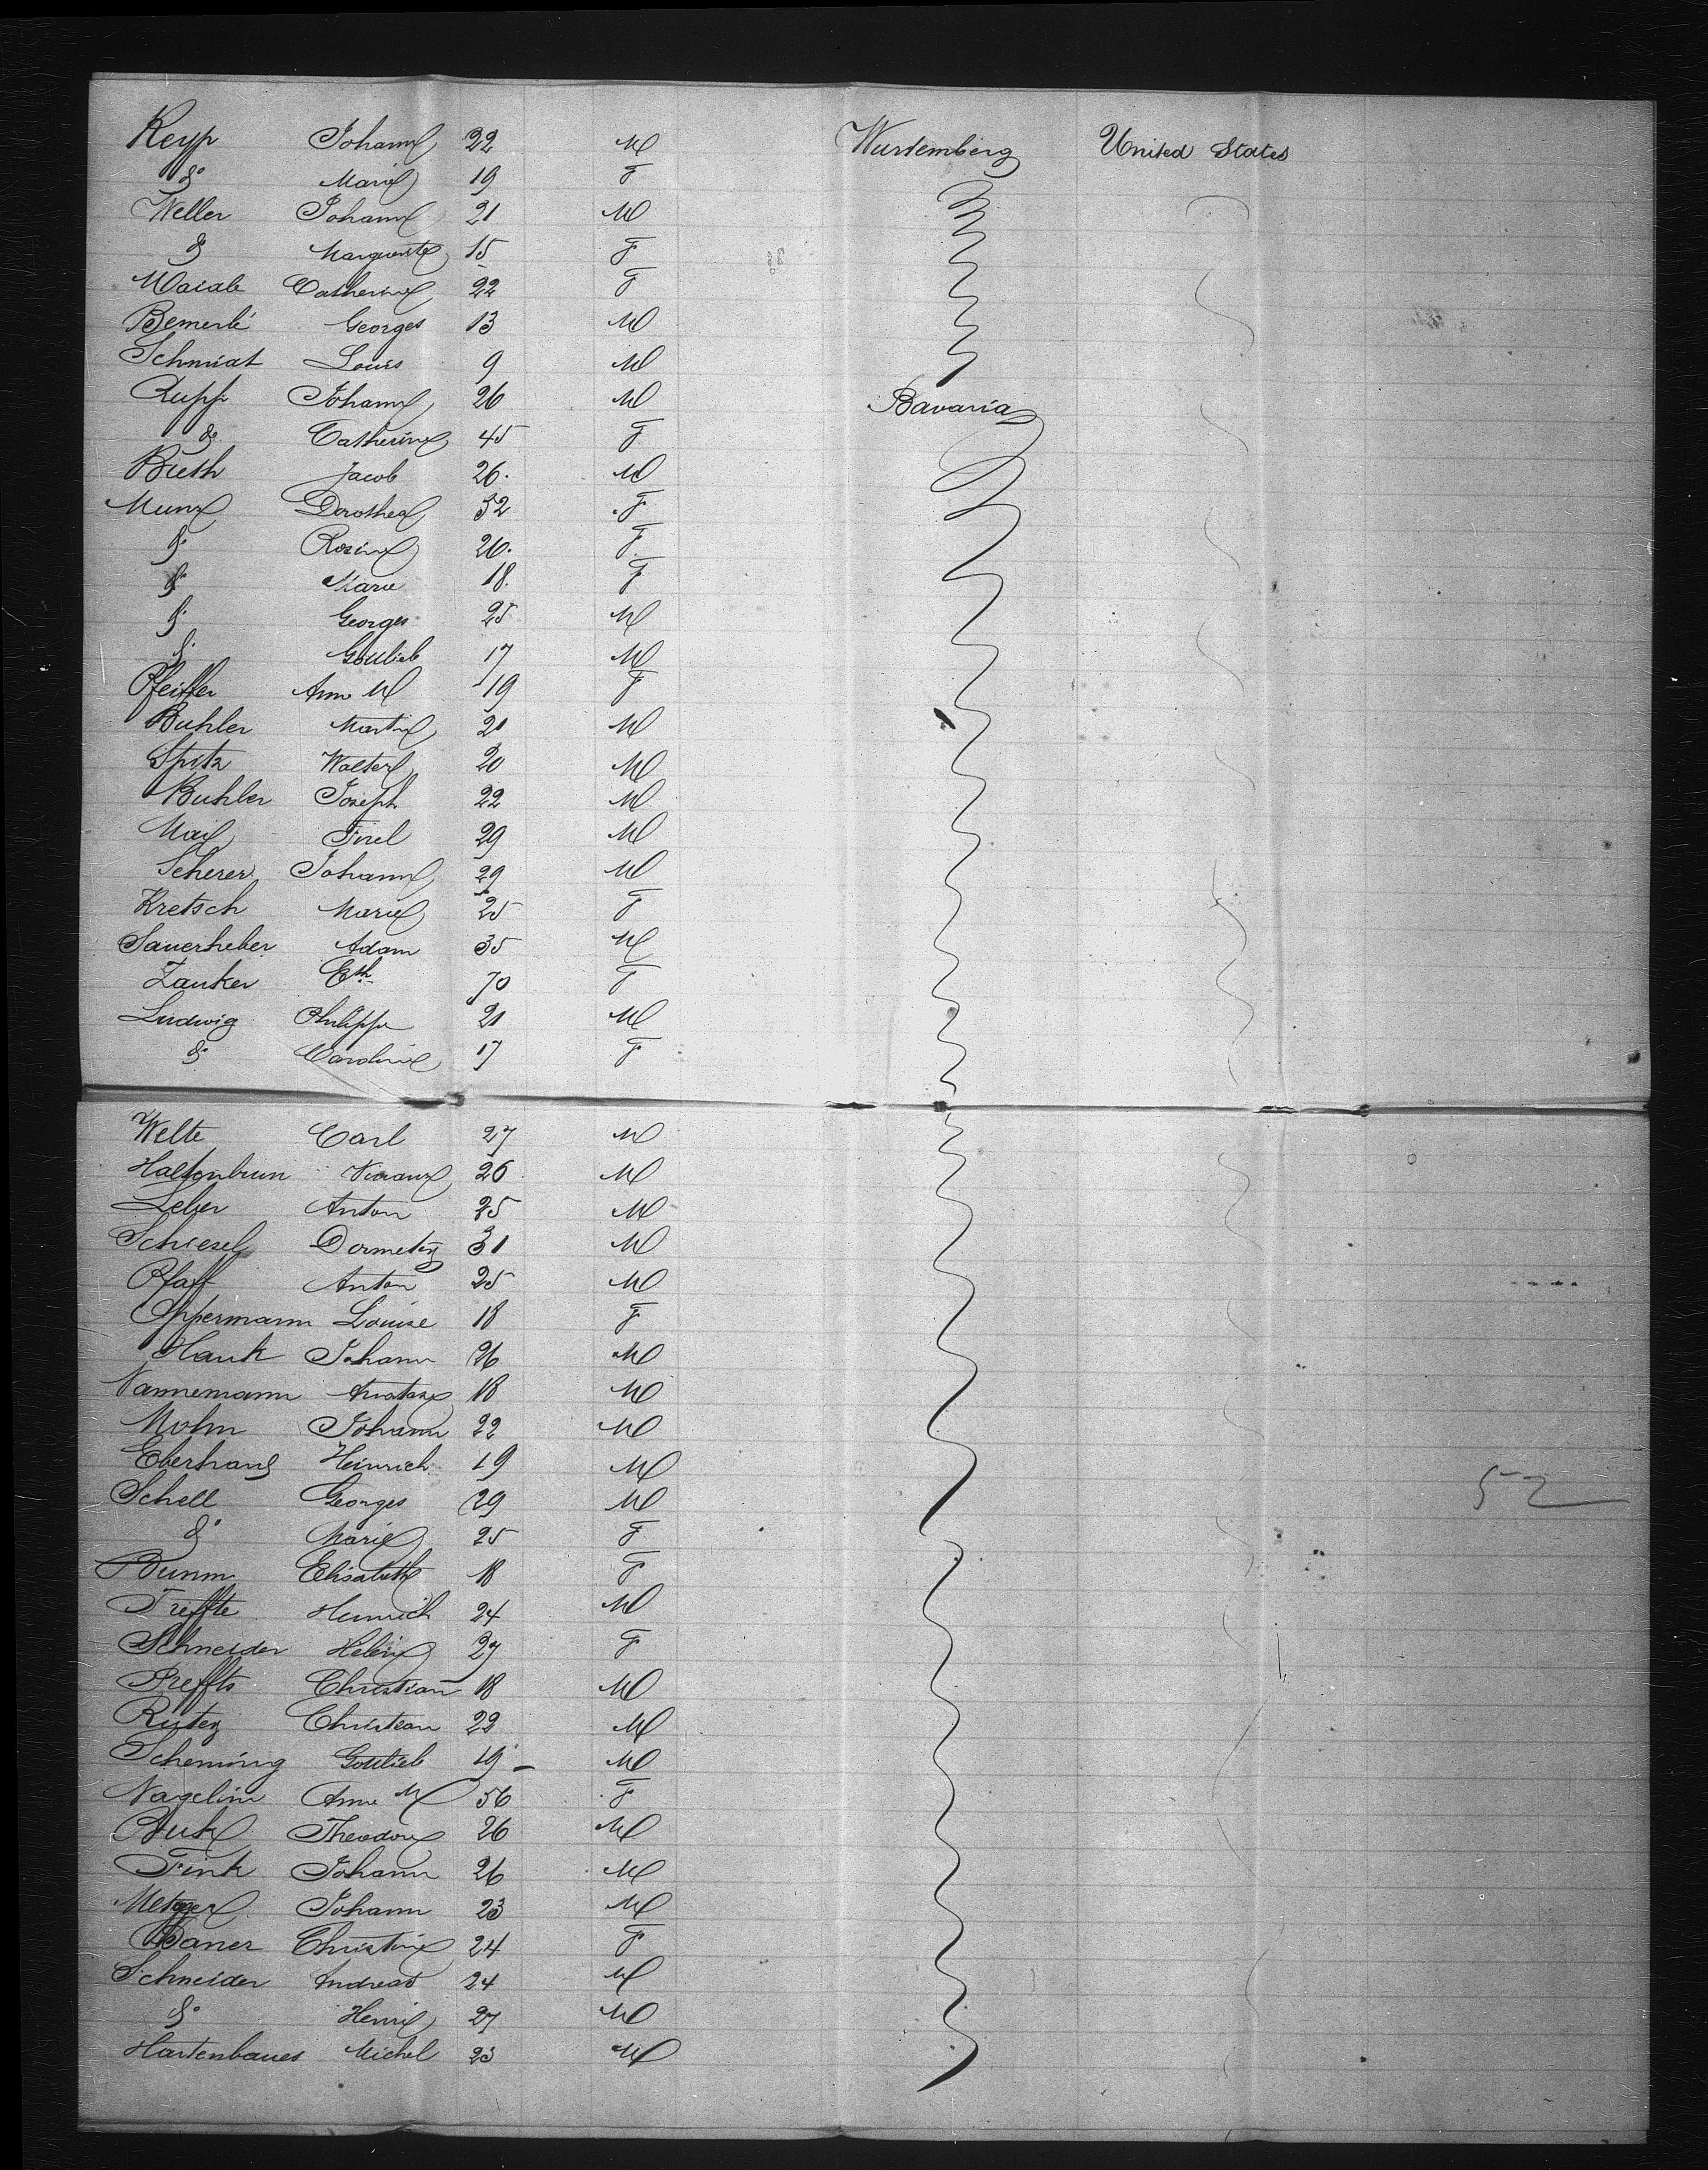 Keyp Johann 22 M Wurtemberg United States
do Marie 19 F
Weller Johann 21 M
do Marguerite 15 F
Catherine 22 F
Bemerlé Georges 13 M
Schmidt Louis 9 M
Rupp Johann 26 M Bavaria
do Catherine 45 F
Bieth Jacob 26 M
Munz Dorothea 52 F
do Rosine 20 F
do Marie 18 F
do Georges 25 M
do Gottlieb 17 M
Pfeiffer Ann M 19 F
Buhler Martin 21 M
Spitz Walter 20 M
Buhler Joseph 22 M
Mai 29 M
Scherer Johann 29 M
Kretsch Marie 25 F
Sauerheber Adam 35 M
Zauker Eth 70 F
Ludwig Philippe 21 M
do Caroline 17 F
Welte Carl 27 M
Haltenbrun 26 M
Leber Anton 25 M
Schiesel 31 M
Pfaff Anton 25 M
Oppermann Louise 18 F
Hauk Johann 26 M
Nannemann 18 M
Mohn Johann 22 M
Eberhang Heinrich 19 M
Schell Georges 29 M 52
do Marie 25 F
Dumm Elisabeth 18 F
Treffte Heinrich 24 M
Schneider Helene 27 F
Preffts Christian 18 M
Rutez Christian 22 M
Scheming Gottlieb 19 M
Nagelin Anne M 56 F
Buk Theodore 26 M
Fink Johann 26 M
Metzger Johann 23 M
Baner Christine 24 F
Schneider Andreas 24 M
do Henri 27 M
Hartenbaues Michel 23 M